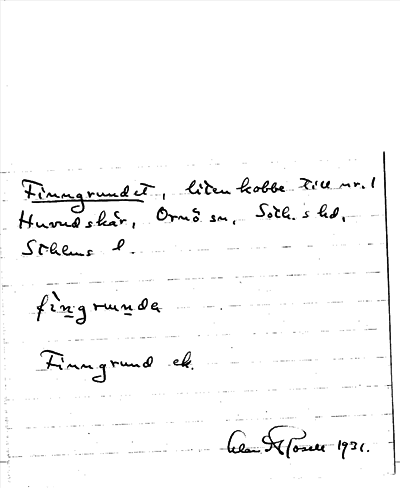 Finngrundet, liten kobbe till nr. 1
Huvudskär, Ornö sn, Soth.s hd,
Sthlms l.
fìn̲grun̲da
Finngrund ek.
1931.